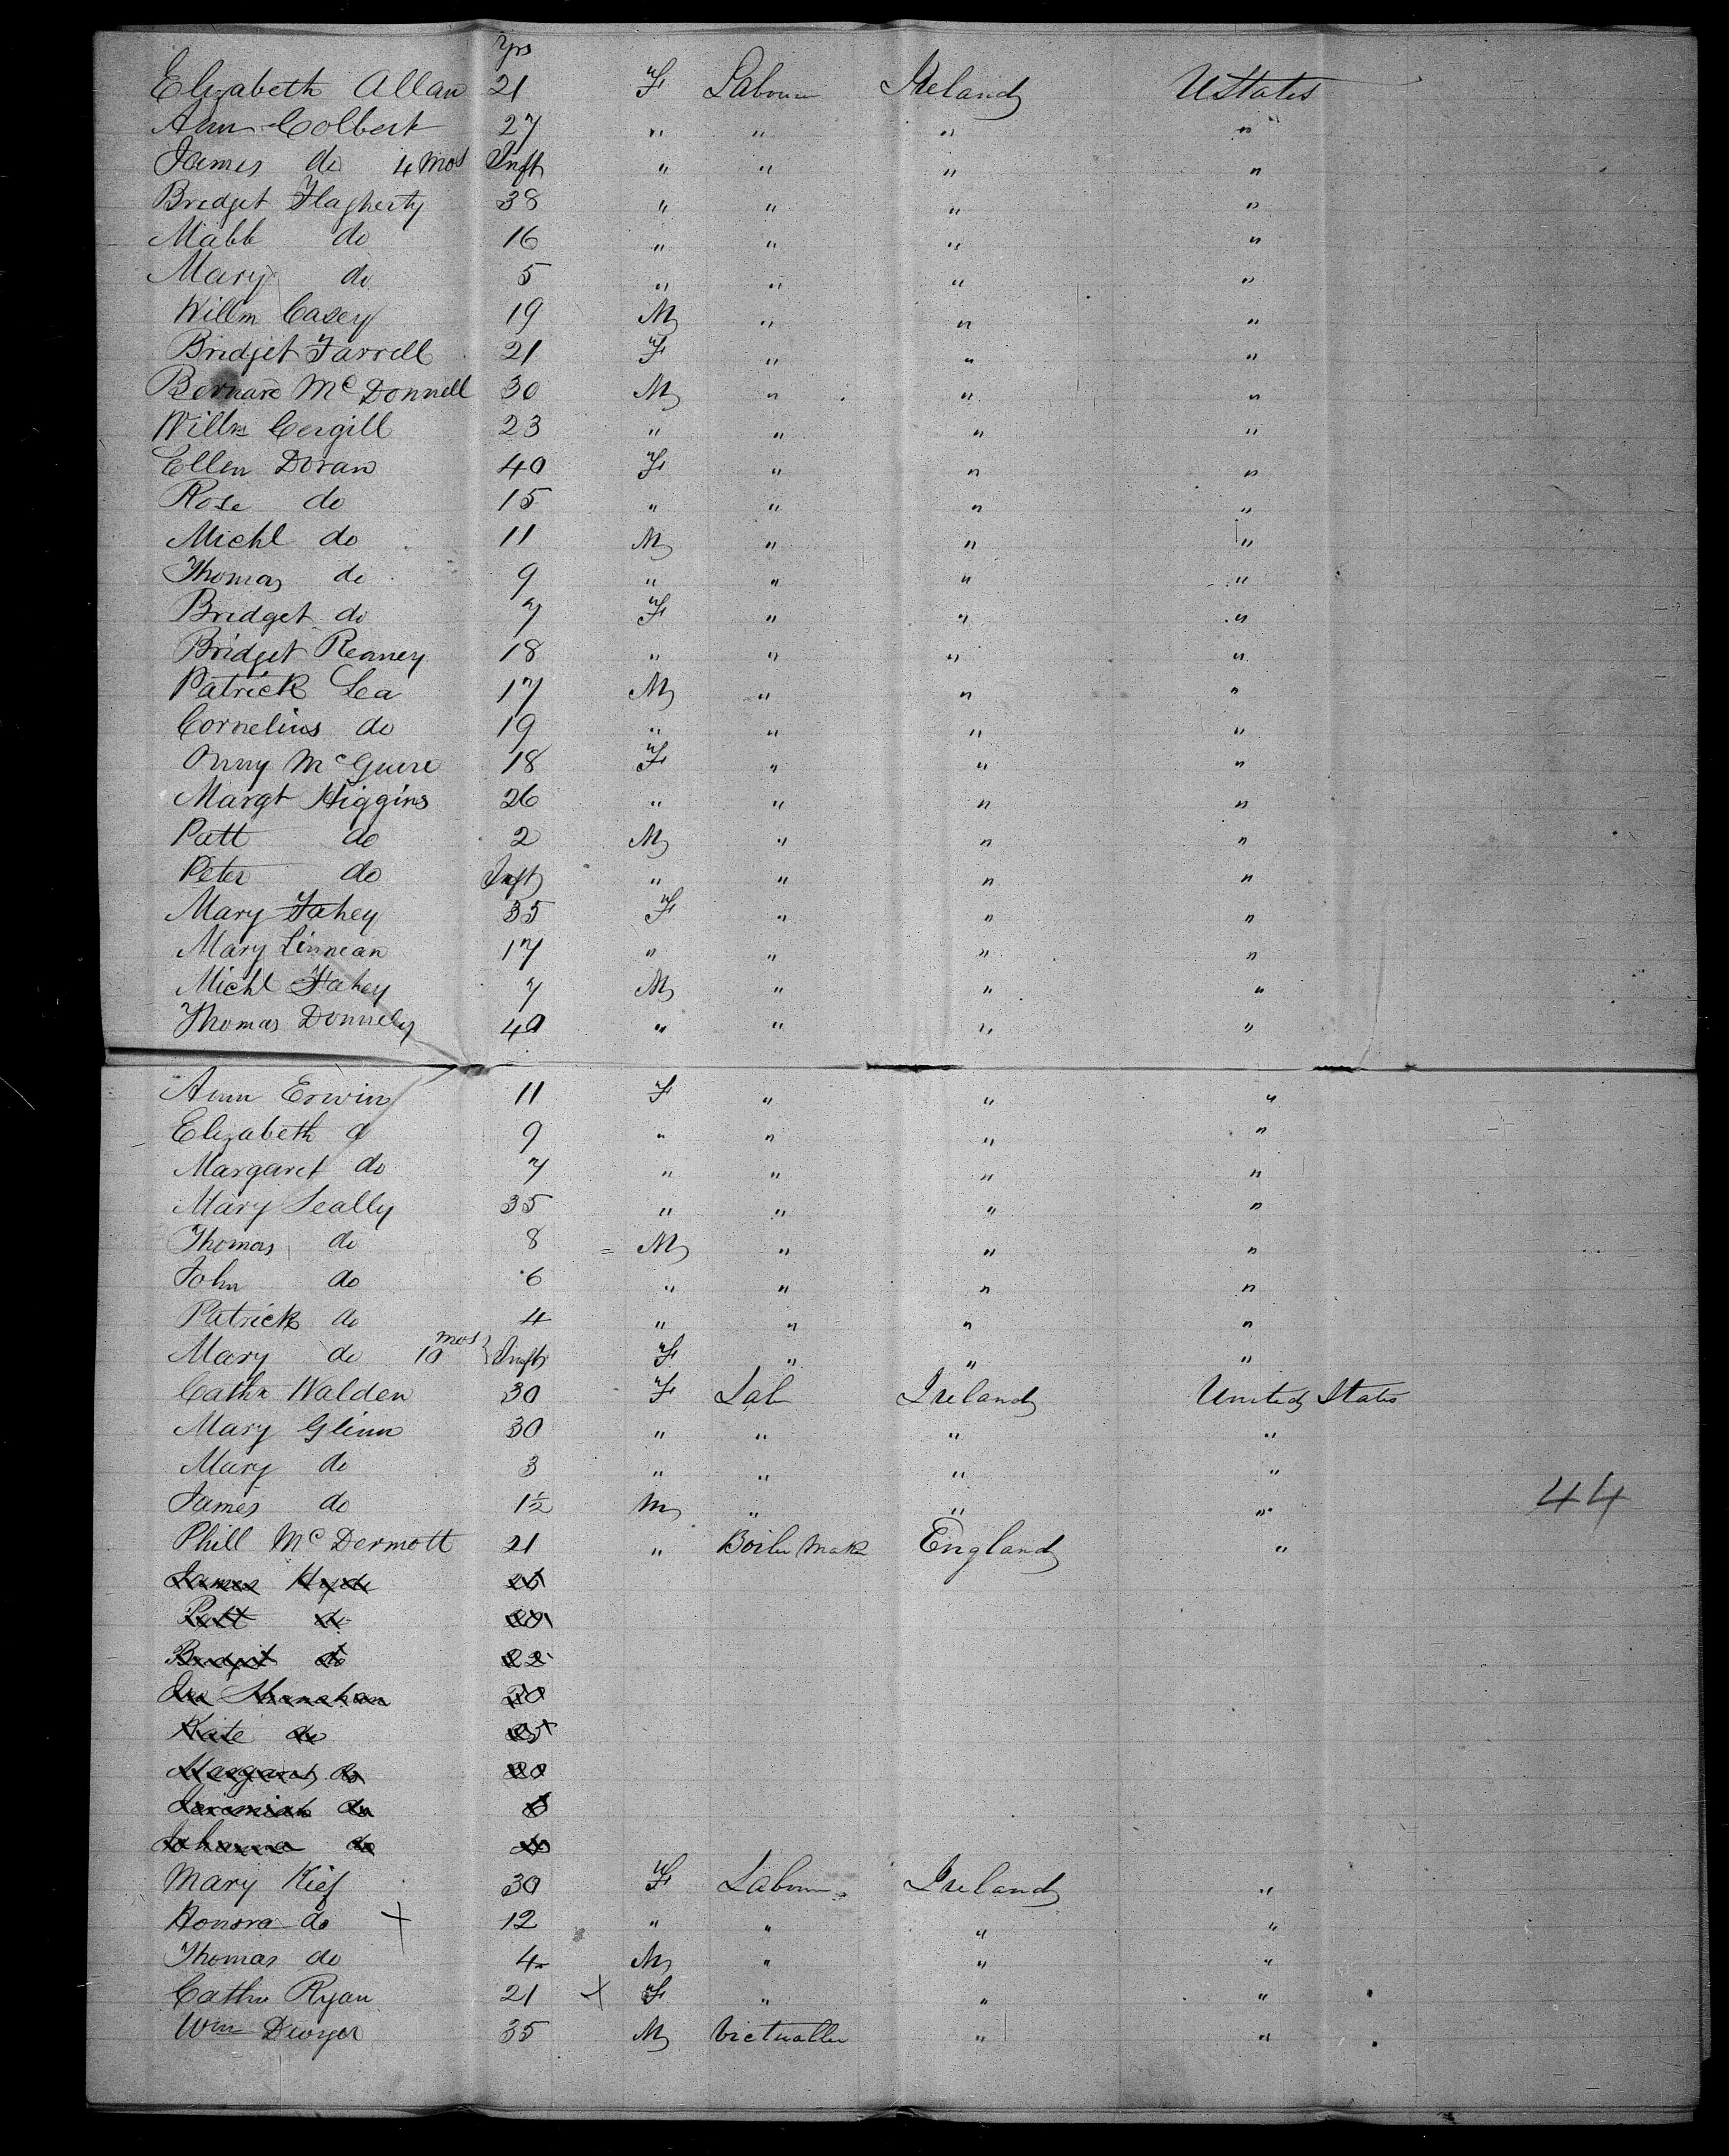 Yrs
Elizabeth Allan 21 F Labour Ireland UStates
Ann Colbert 27 " " " "
James do 4 mos Inft " " " "
Bridget Flagherty 38 " " " "
Mabb do 16 " " " "
Mary do 5 " " " "
Willm Casey 19 M " " "
Bridget Farrell 21 F " " "
Bernard McDonnell 30 M " " "
Willm Cergill 23 " " " "
Ellen Doran 40 F " " "
Rose do 15 " " " "
Michl do 11 M " " "
Thomas do 9 " " " "
Bridget do 7 F " " "
Bridget Reaney 18 " " " "
Patrick Lea 17 M " " "
Cornelius do 19 " " " "
Onny McGuire 18 F " " "
Margt Higgins 26 " " " "
Patt do 2 M " " "
Peter do Inft " " " "
Mary Fahey 35 F " " "
Mary Linnean 17 " " " "
Michl Fahey 7 M " " "
Thomas Donnely 40 " " " "
Ann Erwin 11 F " " "
Elizabeth d 9 " " " "
Margaret do 7 " " " "
Mary Scally 35 " " " "
Thomas do 8 = M " " "
John do 6 " " " "
Patrick do 4 " " " "
Mary do 10 mos Inft F " " "
Cathn Walden 30 F Lab Ireland United States
Mary Glinn 30 " " " "
Mary do 3 " " " "
James do 1½ M " " " 44
Phill McDermott 21 " Boiler Maker England "
James Hyde 25
Patt do 20
Bridget do 22
Jno Shanahan 30
Kate do 25
Margaret do 20
Jeremiah do
Johanna do
Mary Kief 30 F Labour Ireland "
Honora do + 12 " " " "
Thomas do 4 M " " "
Cathn Ryan 21 + F " " "
Wm Dwyer 35 M Victualler " "